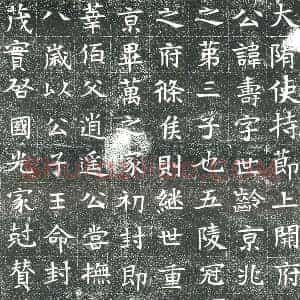 大隋使持節上開府
公諱壽字世齡京兆
之第三子也五陵冠
之府條侯則継世重
京畢萬之家初封即
莘伯父逍遥公嘗撫
八歲以公子王命封
茂實啓國光家尅賛